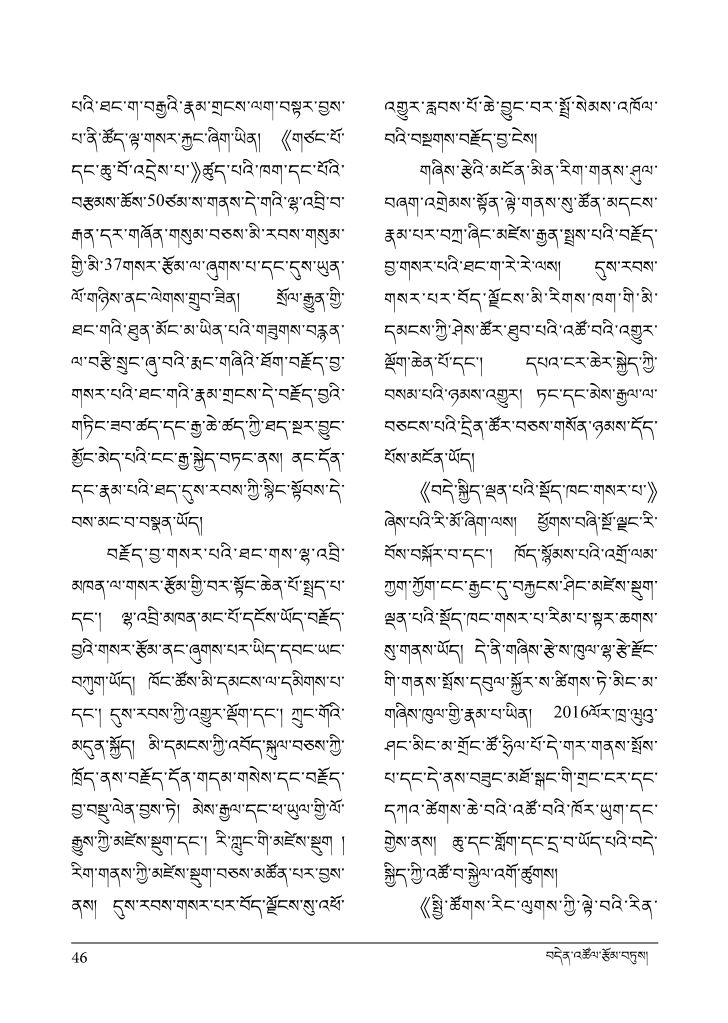 པའི་ཐང་ག་བརྒྱའི་རྣམ་གྲངས་ལག་བསྟར་བྱས་
པ་ནི་ཚོད་ལྟ་གསར་རྐྱང་ཞིག་ཡིན། 《གཙང་པོ་
དང་ཆུ་བོ་འདྲེས་པ་》ཚུད་པའི་ཁག་དང་པོའི་
བརྩམས་ཆོས་50ཙམ་ས་གནས་དེ་གའི་ལྷ་འབྲི་བ་
རྒན་དར་གཞོན་གསུམ་བཅས་མི་རབས་གསུམ་
གྱི་མི་37གསར་རྩོམ་ལ་ཞུགས་པ་དང་དུས་ཡུན་
ལོ་གཉིས་ནང་ལེགས་གྲུབ་ཟིན། སྲོལ་རྒྱུན་གྱི་
ཐང་གའི་ཐུན་མོང་མ་ཡིན་པའི་གཟུགས་བརྙན་
ལ་བརྩི་སྲུང་ཞུ་བའི་རྨང་གཞིའི་ཐོག་བརྗོད་བྱ་
གསར་པའི་ཐང་གའི་རྣམ་གྲངས་དེ་བརྗོད་བྱའི་
གཏིང་ཟབ་ཚད་དང་རྒྱ་ཆེ་ཚད་ཀྱི་ཐད་སྔར་བྱུང་
མྱོང་མེད་པའི་ངང་རྒྱ་སྐྱེད་བཏང་ནས། ནང་དོན་
དང་རྣམ་པའི་ཐད་དུས་རབས་ཀྱི་སྙིང་སྟོབས་དེ་
བས་མང་བ་བསྣན་ཡོད།
བརྗོད་བྱ་གསར་པའི་ཐང་གས་ལྷ་འབྲི་
མཁན་ལ་གསར་རྩོམ་གྱི་བར་སྟོང་ཆེན་པོ་སྤྲད་པ་
དང་། ལྷ་འབྲི་མཁན་མང་པོ་དངོས་ཡོད་བརྗོད་
བྱའི་གསར་རྩོམ་ནང་ཞུགས་པར་ཡིད་དབང་ཡང་
བཀུག་ཡོད། ཁོང་ཚོས་མི་དམངས་ལ་དམིགས་པ་
དང་། དུས་རབས་ཀྱི་འགྱུར་ལྡོག་དང་། ཀྲུང་གོའི་
མདུན་སྐྱོད། མི་དམངས་ཀྱི་འབོད་སྐུལ་བཅས་ཀྱི་
ཁྲོད་ནས་བརྗོད་དོན་གདམ་གསེས་དང་བརྗོད་
བྱ་བསྡུ་ལེན་བྱས་ཏེ། མེས་རྒྱལ་དང་ཕ་ཡུལ་གྱི་ལོ་
རྒྱུས་ཀྱི་མཛེས་སྡུག་དང་། རི་ཀླུང་གི་མཛེས་སྡུག །
རིག་གནས་ཀྱི་མཛེས་སྡུག་བཅས་མཚོན་པར་བྱས་
ནས། དུས་རབས་གསར་པར་བོད་ལྗོངས་སུ་འཕོ་
འགྱུར་རླབས་པོ་ཆེ་བྱུང་བར་སྤྲོ་སེམས་འཁོལ་
བའི་བསྔགས་བརྗོད་བྱ་ངེས།
གཞིས་རྩེའི་མངོན་མིན་རིག་གནས་ཤུལ་
བཞག་འགྲེམས་སྟོན་ལྟེ་གནས་སུ་ཚོན་མདངས་
རྣམ་པར་བཀྲ་ཞིང་མཛེས་རྒྱན་སྤྲས་པའི་བརྗོད་
བྱ་གསར་པའི་ཐང་ག་རེ་རེ་ལས། དུས་རབས་
གསར་པར་བོད་ལྗོངས་མི་རིགས་ཁག་གི་མི་
དམངས་ཀྱི་ཤེས་ཚོར་ཐུབ་པའི་འཚོ་བའི་འགྱུར་
ལྡོག་ཆེན་པོ་དང་། དཔའ་ངར་ཆེར་སྐྱེད་ཀྱི་
བསམ་པའི་ཉམས་འགྱུར། ཏང་དང་མེས་རྒྱལ་ལ་
བཅངས་པའི་དྲིན་ཚོར་བཅས་གསོན་ཉམས་དོད་
པོས་མངོན་ཡོད།
《བདེ་སྐྱིད་ལྡན་པའི་སྡོད་ཁང་གསར་པ་》
ཞེས་པའི་རི་མོ་ཞིག་ལས། ཕྱོགས་བཞི་སྔོ་ལྗང་རི་
བོས་བསྐོར་བ་དང་། ཁོད་སྙོམས་པའི་འགྲོ་ལམ་
ཀྱག་ཀྱོག་ངང་རྒྱང་དུ་བརྐྱངས་ཤིང་མཛེས་སྡུག་
ལྡན་པའི་སྡོད་ཁང་གསར་པ་རིམ་པ་སྟར་ཆགས་
སུ་གནས་ཡོད། དེ་ནི་གཞིས་རྩེ་ས་ཁུལ་ལྷ་རྩེ་རྫོང་
གི་གནས་སྤོས་དབུལ་སྐྱོར་ས་ཚིགས་ཏེ་མིང་མ་
གཞིས་ཁུལ་གྱི་རྣམ་པ་ཡིན། 2016ལོར་ཁྲ་ཝུའུ་
ཤང་མིང་མ་གྲོང་ཚོ་ཧྲིལ་པོ་དེ་གར་གནས་སྤོས་
པ་དང་དེ་ནས་བཟུང་མཐོ་སྒང་གི་གྲང་ངར་དང་
དཀའ་ཚེགས་ཆེ་བའི་འཚོ་བའི་ཁོར་ཡུག་དང་
གྱེས་ནས། ཆུ་དང་གློག་དང་དྲ་བ་ཡོད་པའི་བདེ་
སྐྱིད་ཀྱི་འཚོ་བ་སྐྱེལ་འགོ་ཚུགས།
《སྤྱི་ཚོགས་རིང་ལུགས་ཀྱི་ལྟེ་བའི་རིན་
46 བདེན་འཚོལ་རྩོམ་བཏུས།